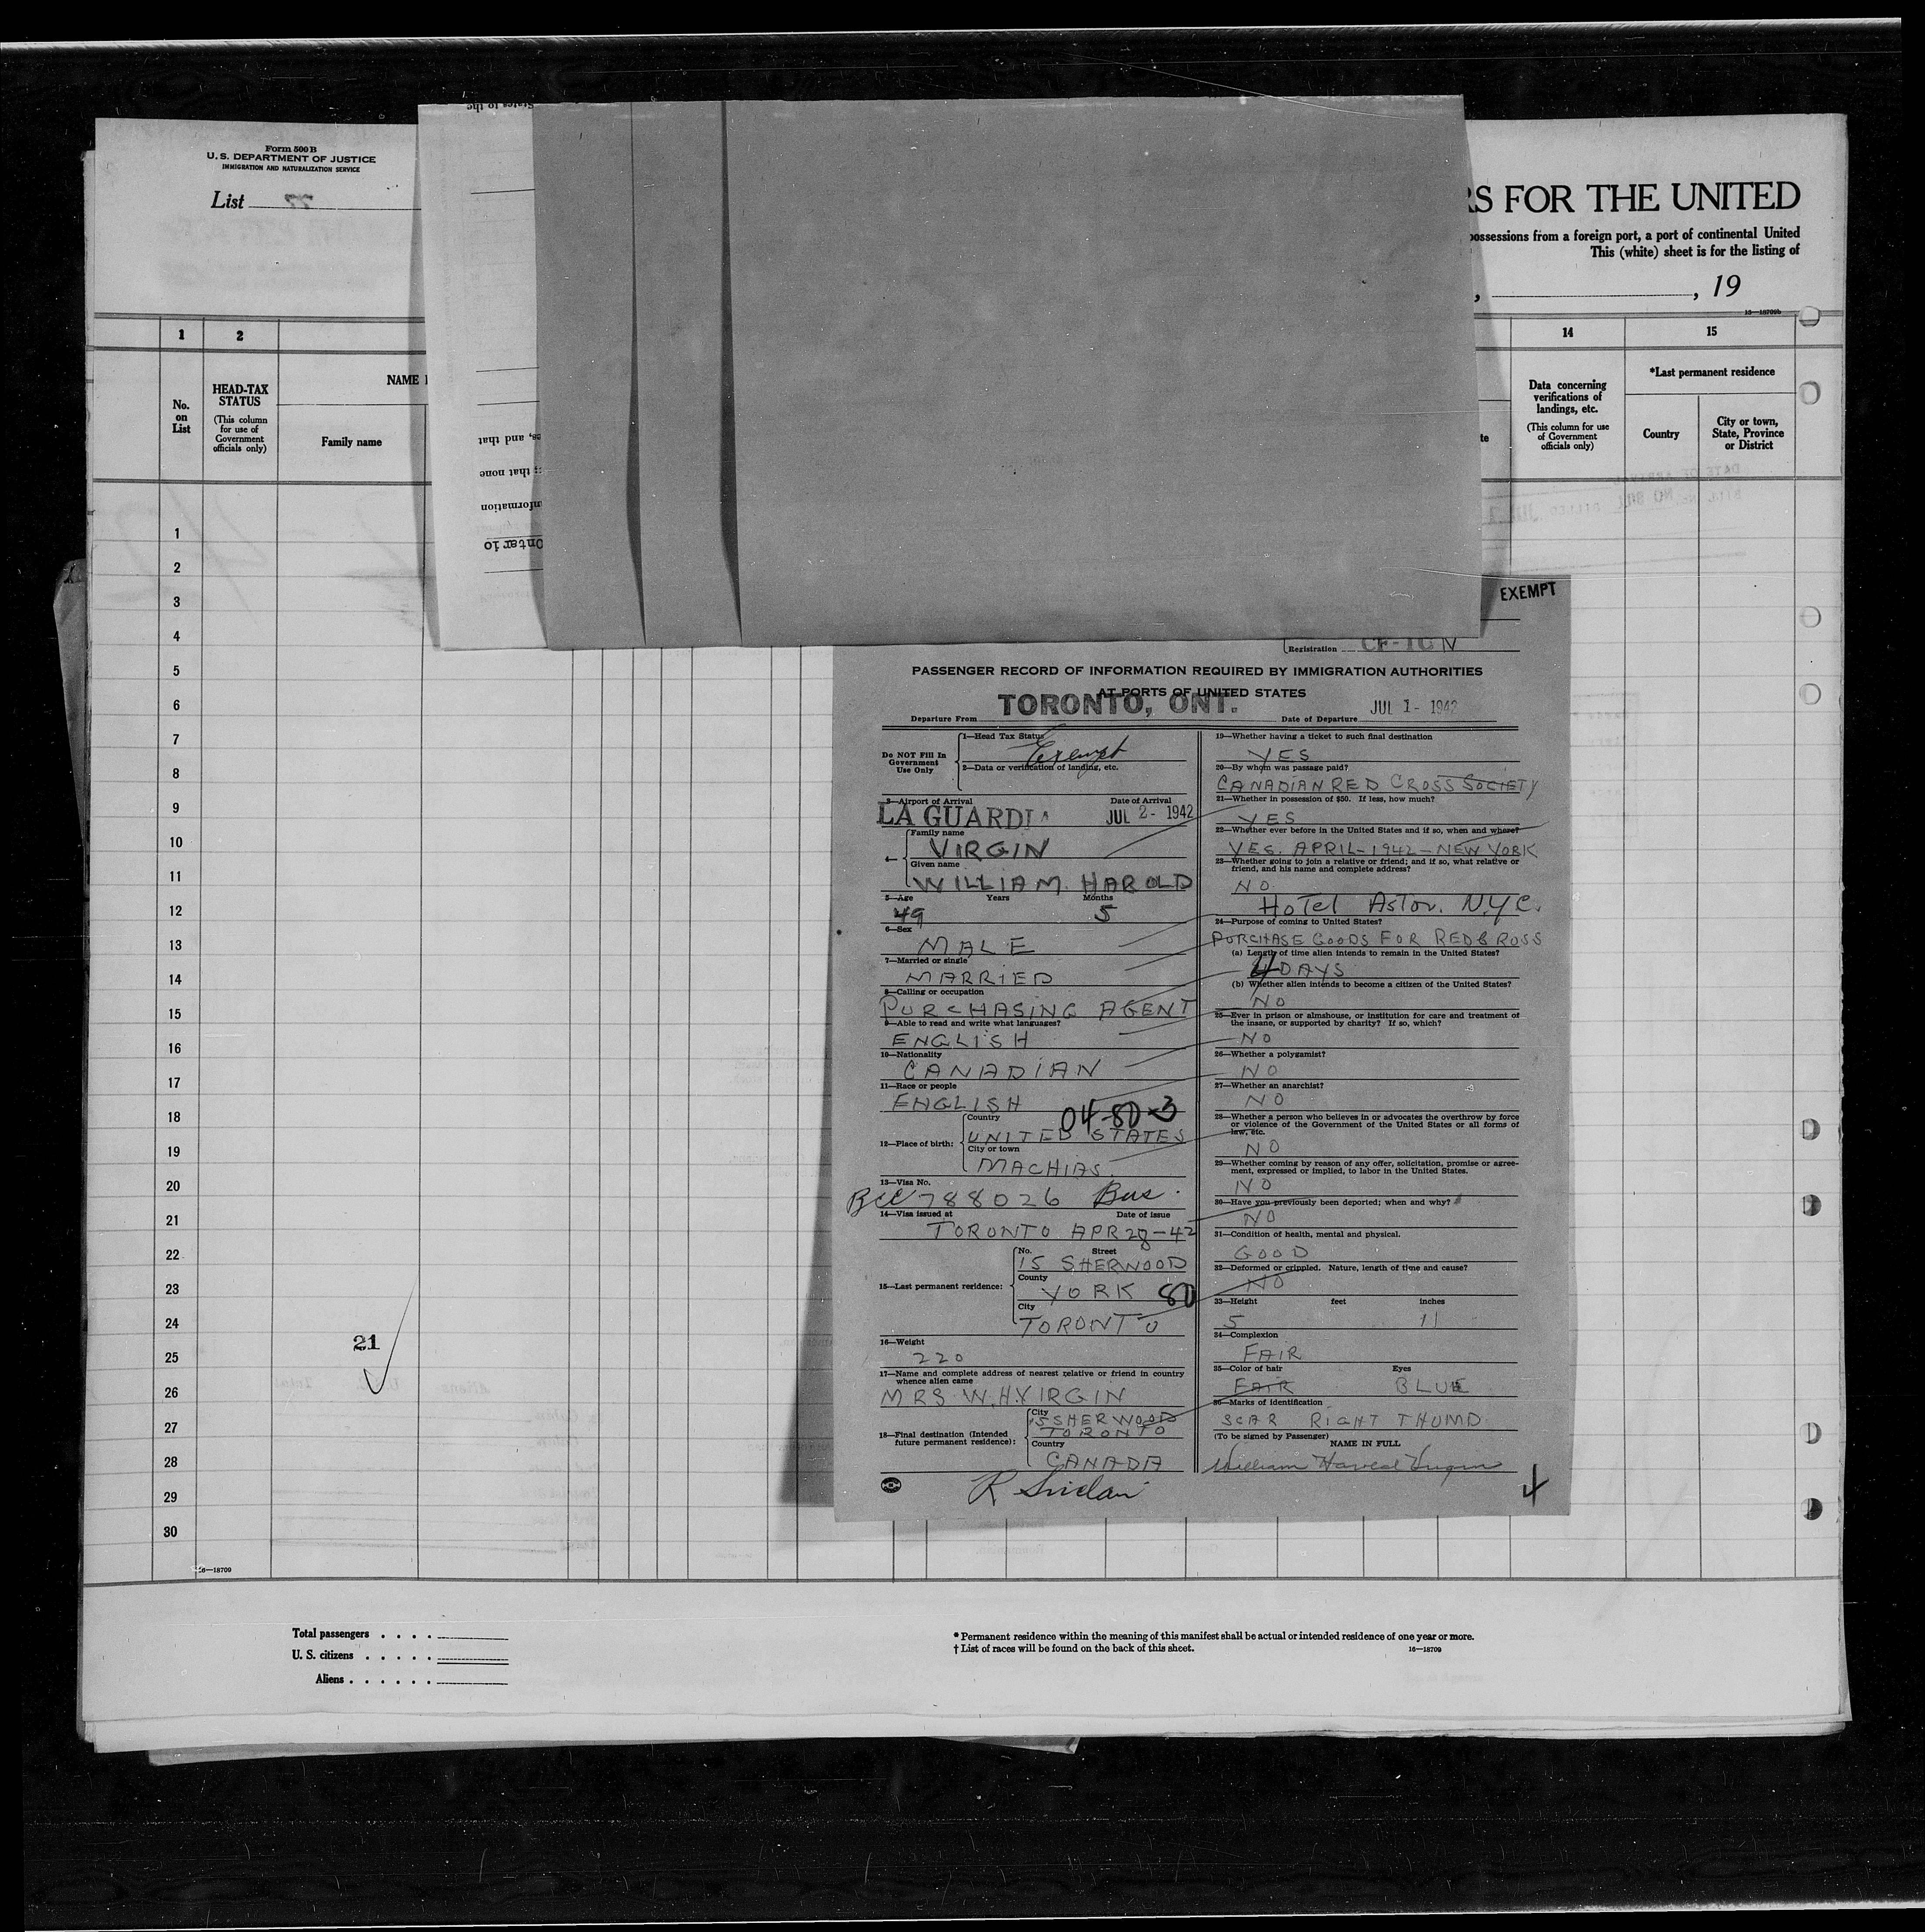 Form 500 B
U. S. DEPARTMENT OF JUSTICE
IMMIGRATION AND NATURALIZATION SERVICE
List
States to the
es, and that
; that none
nformation
Ontario
RS FOR THE UNITED
possessions from a foreign port, a port of continental United
This (white) sheet is for the listing of
, , 19
16—18709b
1 2 14 15
No. on List
HEAD-TAX STATUS
(This column for use of Government officials only)
NAME
Family name
Data concerning verifications of landings, etc.
(This column for use of Government officials only)
*Last permanent residence
Country
City or town, State, Province or District
1
2
3
4
5
6
7
8
9
10
11
12
13
14
15
16
17
18
19
20
21
22
23
24
25
26
27
28
29
30
21
16—18709
EXEMPT
Registration CF-TCN
PASSENGER RECORD OF INFORMATION REQUIRED BY IMMIGRATION AUTHORITIES
AT PORTS OF UNITED STATES
Departure From TORONTO, ONT. Date of Departure JUL 1 - 1942
Do NOT Fill In Government Use Only
1—Head Tax Status
Exempt
2—Data or verification of landing, etc.
3—Airport of Arrival Date of Arrival
LA GUARDIA JUL 2 - 1942
4— Family name
VIRGIN
Given name
WILLIAM HAROLD
5—Age Years Months
49 5
6—Sex
MALE
7—Married or single
MARRIED
8—Calling or occupation
PURCHASING AGENT
9—Able to read and write what languages?
ENGLISH
10—Nationality
CANADIAN
11—Race or people
ENGLISH
04-80-3
12—Place of birth: Country
UNITED STATES
City or town
MACHIAS
13—Visa No.
BCC 788026 Bus.
14—Visa issued at Date of issue
TORONTO APR 28-42
15—Last permanent residence: No. Street
15 SHERWOOD
County
YORK 80
City
TORONTO
16—Weight
220
17—Name and complete address of nearest relative or friend in country
whence alien came
MRS W.H. VIRGIN
18—Final destination (Intended future permanent residence): City
15 SHERWOOD
TORONTO
Country
CANADA
19—Whether having a ticket to such final destination
YES
20—By whom was passage paid?
CANADIAN RED CROSS SOCIETY
21—Whether in possession of $50. If less, how much?
YES
22—Whether ever before in the United States and if so, when and where?
YES. APRIL-1942-NEW YORK
23—Whether going to join a relative or friend; and if so, what relative or
friend, and his name and complete address?
NO
Hotel Astor. N.Y.C.
24—Purpose of coming to United States?
PURCHASE GOODS FOR RED CROSS
(a) Length of time alien intends to remain in the United States?
4 DAYS
(b) Whether alien intends to become a citizen of the United States?
NO
25—Ever in prison or almshouse, or institution for care and treatment of
the insane, or supported by charity? If so, which?
NO
26—Whether a polygamist?
NO
27—Whether an anarchist?
NO
28—Whether a person who believes in or advocates the overthrow by force
or violence of the Government of the United States or all forms of
law, etc.
NO
29—Whether coming by reason of any offer, solicitation, promise or agree-
ment, expressed or implied, to labor in the United States.
NO
30—Have you previously been deported; when and why?
NO
31—Condition of health, mental and physical.
GOOD
32—Deformed or crippled. Nature, length of time and cause?
NO
33—Height feet inches
5 11
34—Complexion
FAIR
35—Color of hair Eyes
FAIR BLUE
36—Marks of identification
SCAR RIGHT THUMB
(To be signed by Passenger)
NAME IN FULL
William Harold Virgin
Total passengers . . . .
U. S. citizens . . . . .
Aliens . . . . . .
* Permanent residence within the meaning of this manifest shall be actual or intended residence of one year or more.
† List of races will be found on the back of this sheet.
16—18709